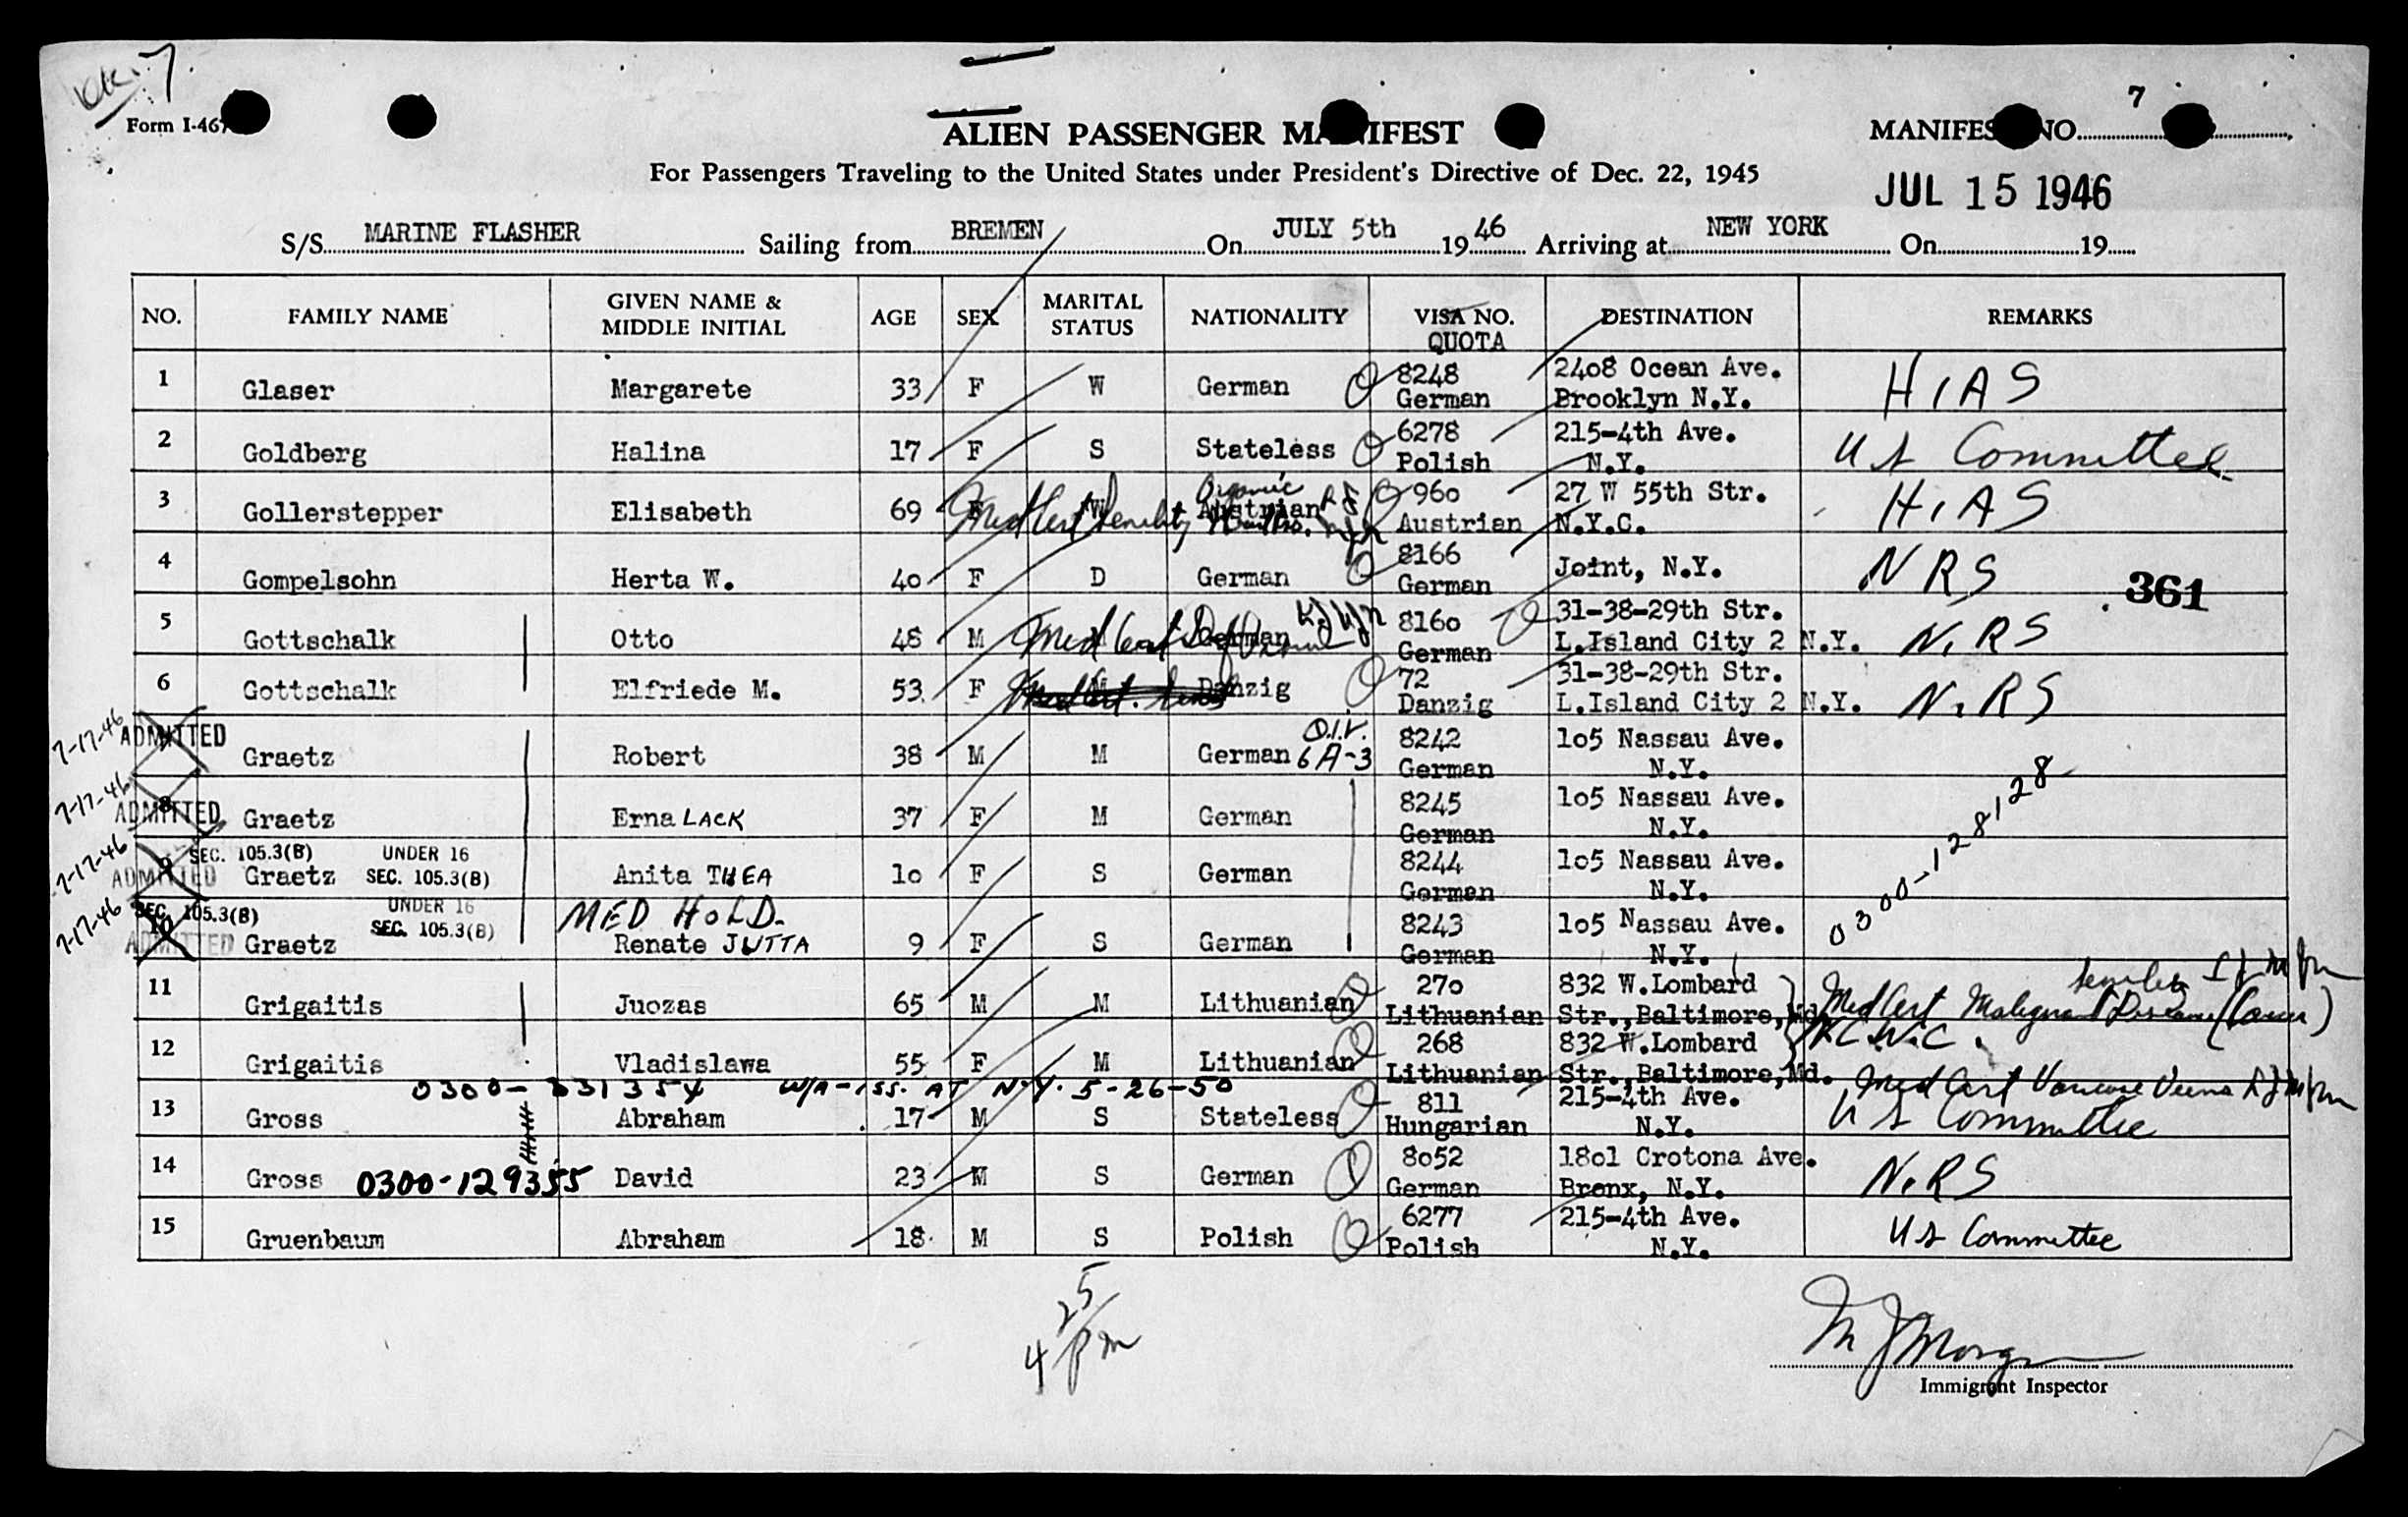 7
Form I-467
ALIEN PASSENGER MANIFEST
MANIFEST NO. 7
For Passengers Traveling to the United States under President's Directive of Dec. 22, 1945
JUL 15 1946
S/S MARINE FLASHER Sailing from BREMEN On JULY 5th 1946 Arriving at NEW YORK On 19
NO. FAMILY NAME GIVEN NAME & MIDDLE INITIAL AGE SEX MARITAL STATUS NATIONALITY VISA NO. QUOTA DESTINATION REMARKS
1 Glaser Margarete 33 F W German 8248 German 2408 Ocean Ave. Brooklyn N.Y. HIAS
2 Goldberg Halina 17 F S Stateless 6278 Polish 215-4th Ave. N.Y. US Committee
3 Gollerstepper Elisabeth 69 F W Austrian 960 Austrian 27 W 55th Str. N.Y.C. HIAS
Med Cert Senility Organic
4 Gompelsohn Herta W. 40 F D German 8166 German Joint, N.Y. NRS
361
5 Gottschalk Otto 48 M German 8160 German 31-38-29th Str. L.Island City 2 N.Y. N.RS
Med Cert
6 Gottschalk Elfriede M. 53 F M Danzig 72 Danzig 31-38-29th Str. L.Island City 2 N.Y. N.RS
7-17-46 ADMITTED Graetz Robert 38 M M German O.I.V. 6A-3 8242 German 105 Nassau Ave. N.Y.
7-17-46 ADMITTED 8 Graetz Erna LACK 37 F M German 8245 German 105 Nassau Ave. N.Y.
SEC. 105.3(B) UNDER 16
7-17-46 ADMITTED 9 Graetz SEC. 105.3(B) Anita THEA 10 F S German 8244 German 105 Nassau Ave. N.Y.
0300-128128
SEC. 105.3(B) UNDER 16 SEC. 105.3(B) MED HOLD
7-17-46 ADMITTED 10 Graetz Renate JUTTA 9 F S German 8243 German 105 Nassau Ave. N.Y.
11 Grigaitis Juozas 65 M M Lithuanian 270 Lithuanian 832 W.Lombard Str.,Baltimore,Md. Med Cert Malignant Disease (Cancer)
12 Grigaitis Vladislawa 55 F M Lithuanian 268 Lithuanian 832 W.Lombard Str.,Baltimore,Md. N.C.W.C.
Med Cert Varicose Veins
0300-331354 W/A-ISS. AT N.Y. 5-26-50
13 Gross Abraham 17 M S Stateless 811 Hungarian 215-4th Ave. N.Y. US Committee
14 Gross 0300-129355 David 23 M S German 8052 German 1801 Crotona Ave. Bronx, N.Y. N.RS
15 Gruenbaum Abraham 18 M S Polish 6277 Polish 215-4th Ave. N.Y. US Committee
4 25 pm
Immigrant Inspector